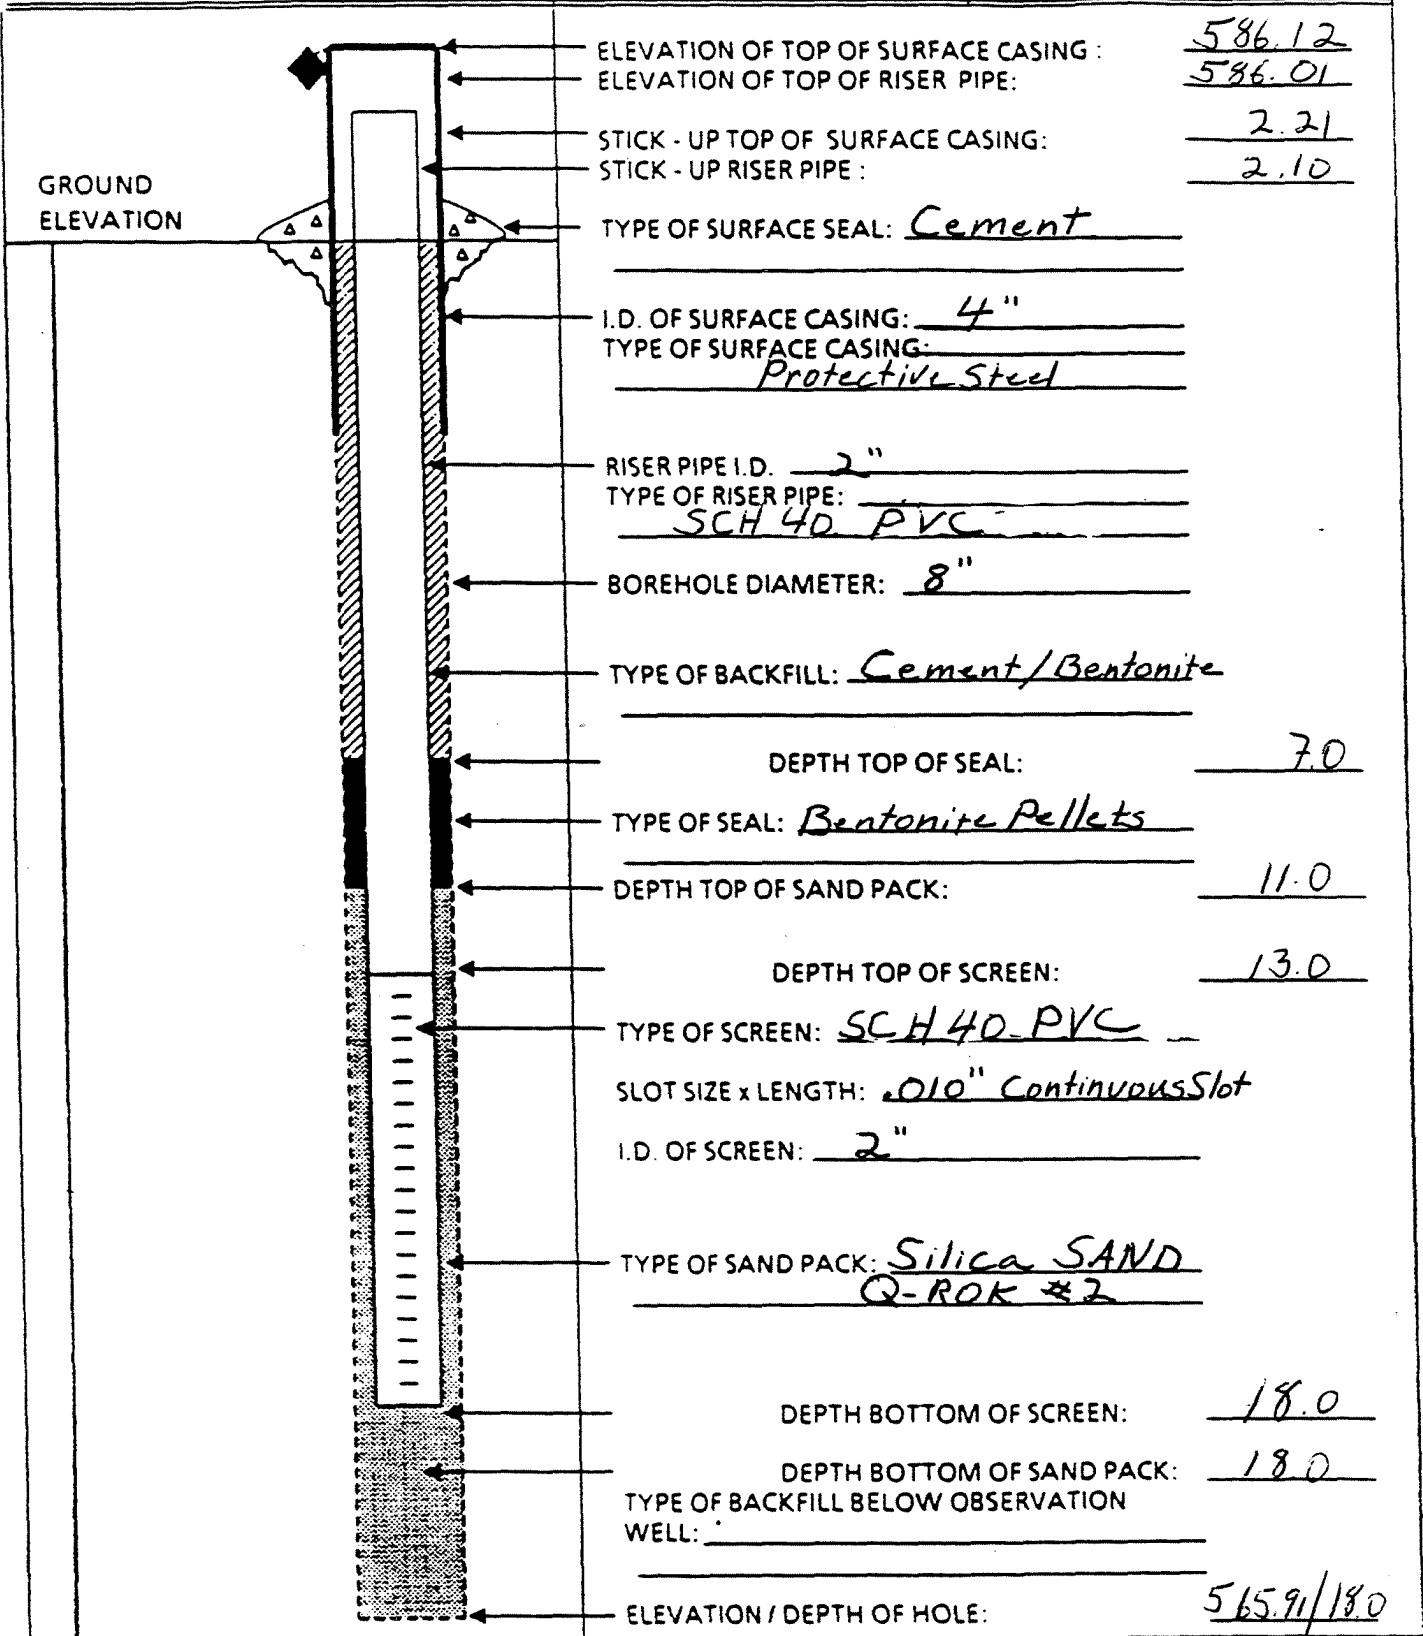 ELEVATION OF TOP OF SURFACE CASING : 586.12
ELEVATION OF TOP OF RISER PIPE: 586.01
STICK - UP TOP OF SURFACE CASING: 2.21
STICK - UP RISER PIPE : 2.10
GROUND
ELEVATION
TYPE OF SURFACE SEAL: Cement
I.D. OF SURFACE CASING: 4"
TYPE OF SURFACE CASING:
Protective Steel
RISER PIPE I.D. 2"
TYPE OF RISER PIPE:
SCH 40 PVC
BOREHOLE DIAMETER: 8"
TYPE OF BACKFILL: Cement/Bentonite
DEPTH TOP OF SEAL: 7.0
TYPE OF SEAL: Bentonite Pellets
DEPTH TOP OF SAND PACK: 11.0
DEPTH TOP OF SCREEN: 13.0
TYPE OF SCREEN: SCH 40 PVC
SLOT SIZE x LENGTH: .010" Continuous Slot
I.D. OF SCREEN: 2"
TYPE OF SAND PACK: Silica SAND
Q-ROK #2
DEPTH BOTTOM OF SCREEN: 18.0
DEPTH BOTTOM OF SAND PACK: 18.0
TYPE OF BACKFILL BELOW OBSERVATION
WELL:
ELEVATION / DEPTH OF HOLE: 565.91/18.0